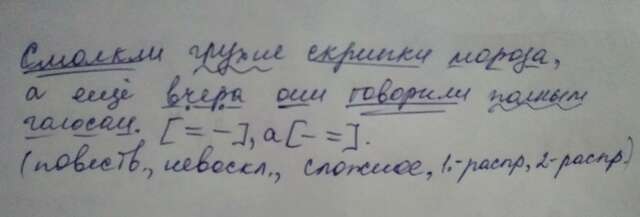 Смолкли грузые скрипки мороза,
а ещё вчера они говорили полным
голосом. [= -], а [- =].
(повеств., невоскл., сложное, 1.-распр, 2-распр.)